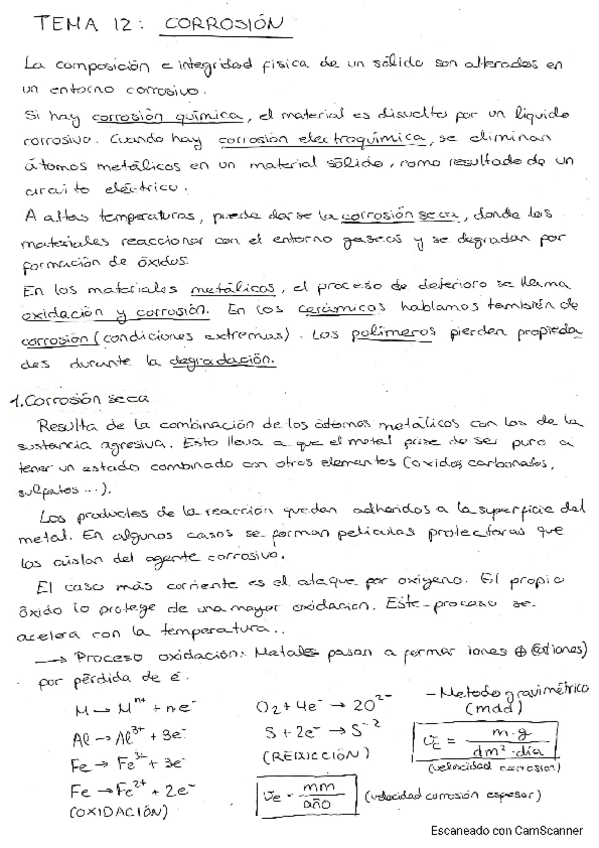 TEMA 12: CORROSIÓN
La composición e integridad física de un sólido son alteradas en
un entorno corrosivo.
Si hay corrosión química, el material es disuelto por un líquido
corrosivo. Cuando hay corrosión electroquímica, se eliminan
átomos metálicos en un material sólido, como resultado de un
circuito eléctrico.
A altas temperaturas, puede darse la corrosión seca, donde los
materiales reaccionar con el entorno gaseoso y se degradan por
formación de óxidos.
En los materiales metálicos, el proceso de deterioro se llama
oxidación y corrosión. En los cerámicos hablamos también de
corrosión (condiciones extremas). Los polímeros pierden propieda
des durante la degradación.
1. Corrosión seca
Resulta de la combinación de los átomos metálicos con los de la
sustancia agresiva. Esto lleva a que el metal pase de ser puro a
tener un estado combinado con otros elementos (oxidos, carbonatos,
sulfatos ...).
Los productos de la reacción quedan adheridos a la superficie del
metal. En algunos casos se forman películas protectoras que
los aíslan del agente corrosivo.
El caso más corriente es el ataque por oxígeno. El propio
óxido lo protege de una mayor oxidación. Este proceso se
acelera con la temperatura..
→ Proceso oxidación: Metales pasan a formar iones ⊕ (cationes)
por pérdida de e⁻.
M → Mⁿ⁺ + ne⁻ O₂ + 4e⁻ → 2O²⁻ - Metodo gravimétrico
(mdd)
Al → Al³⁺ + 3e⁻ S + 2e⁻ → S⁻² = m·g / dm²·día
Fe → Fe³⁺ + 3e⁻ (REDUCCIÓN) (velocidad corrosion)
Fe → Fe²⁺ + 2e⁻ = mm / año (velocidad corrosión espesor)
(OXIDACIÓN)
Escaneado con CamScanner